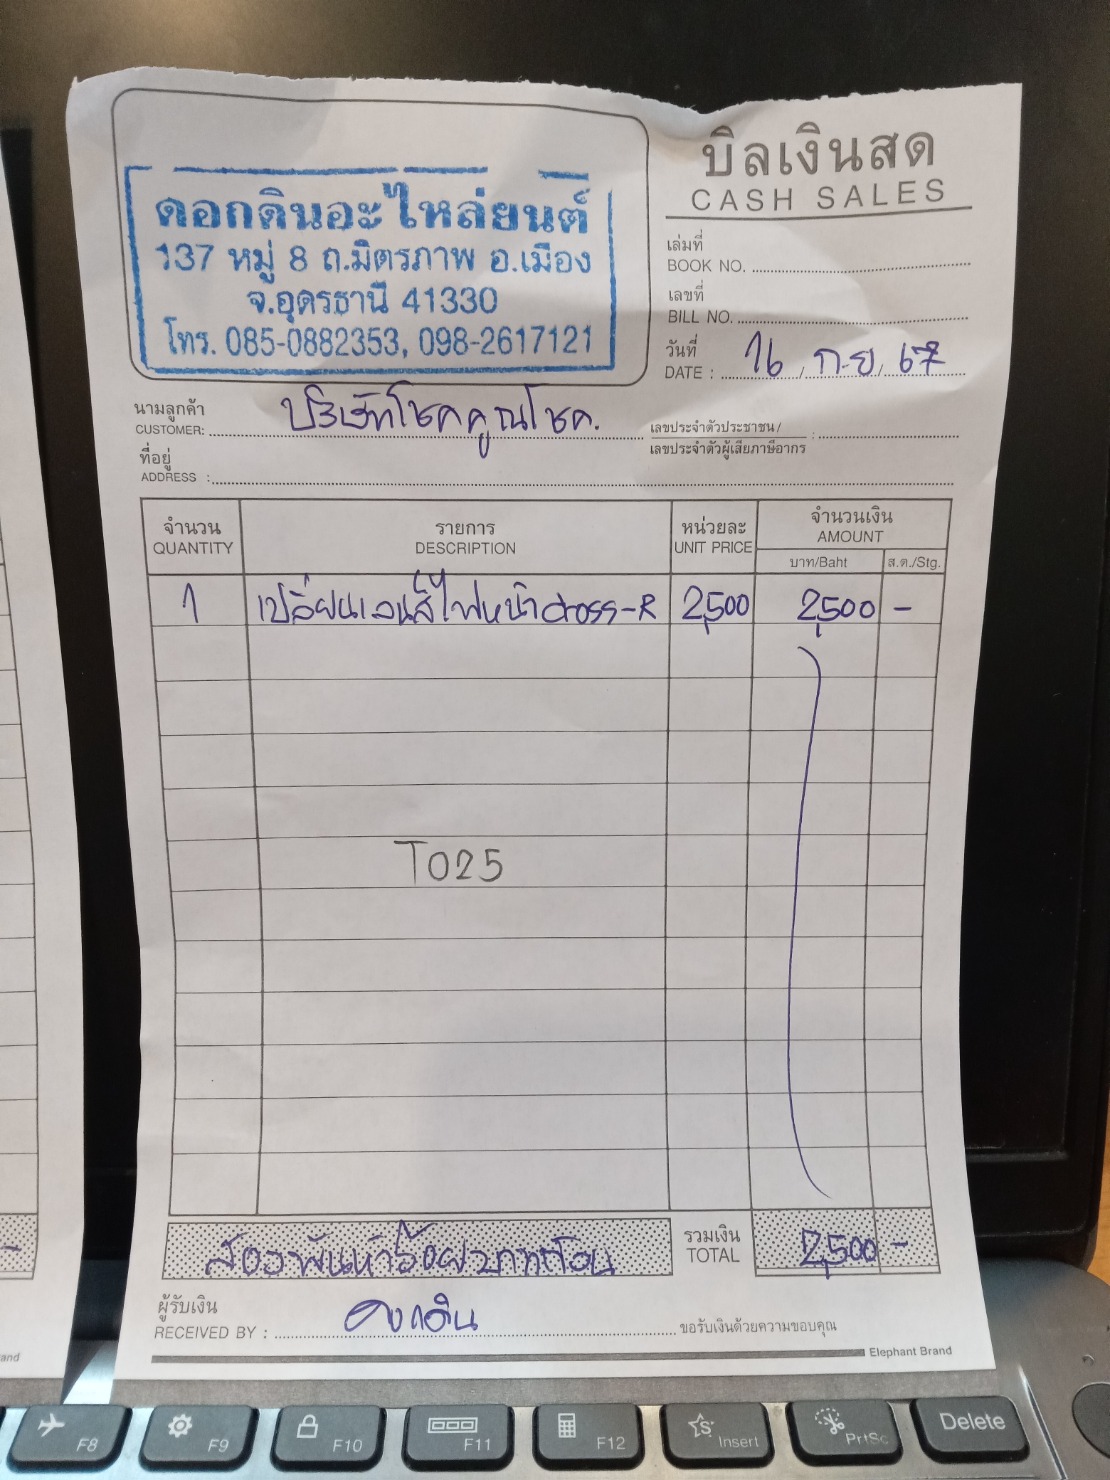 บิลเงินสด
CASH SALES
ดอกดินอะไหล่ยนต์
137 หมู่ 8 ถ.มิตรภาพ อ.เมือง
จ.อุดรธานี 41330
โทร. 085-0882353, 098-2617121
เล่มที่
BOOK NO.
เลขที่
BILL NO.
วันที่
DATE : 16 / ก.ย / 67
นามลูกค้า
CUSTOMER: บริษัทโชคคูณโชค.
เลขประจำตัวประชาชน /
เลขประจำตัวผู้เสียภาษีอากร :
ที่อยู่
ADDRESS :
จำนวน รายการ หน่วยละ จำนวนเงิน
QUANTITY DESCRIPTION UNIT PRICE AMOUNT
บาท/Baht ส.ต./Stg.
1 เปลี่ยนเลนส์ไฟหน้า cross-R 2,500 2,500 -
T025
สองพันห้าร้อยบาทถ้วน รวมเงิน 2,500 -
TOTAL
ผู้รับเงิน
RECEIVED BY : ขอรับเงินด้วยความขอบคุณ
Elephant Brand
and
F8 F9 F10 F11 F12 Insert PrtSc Delete